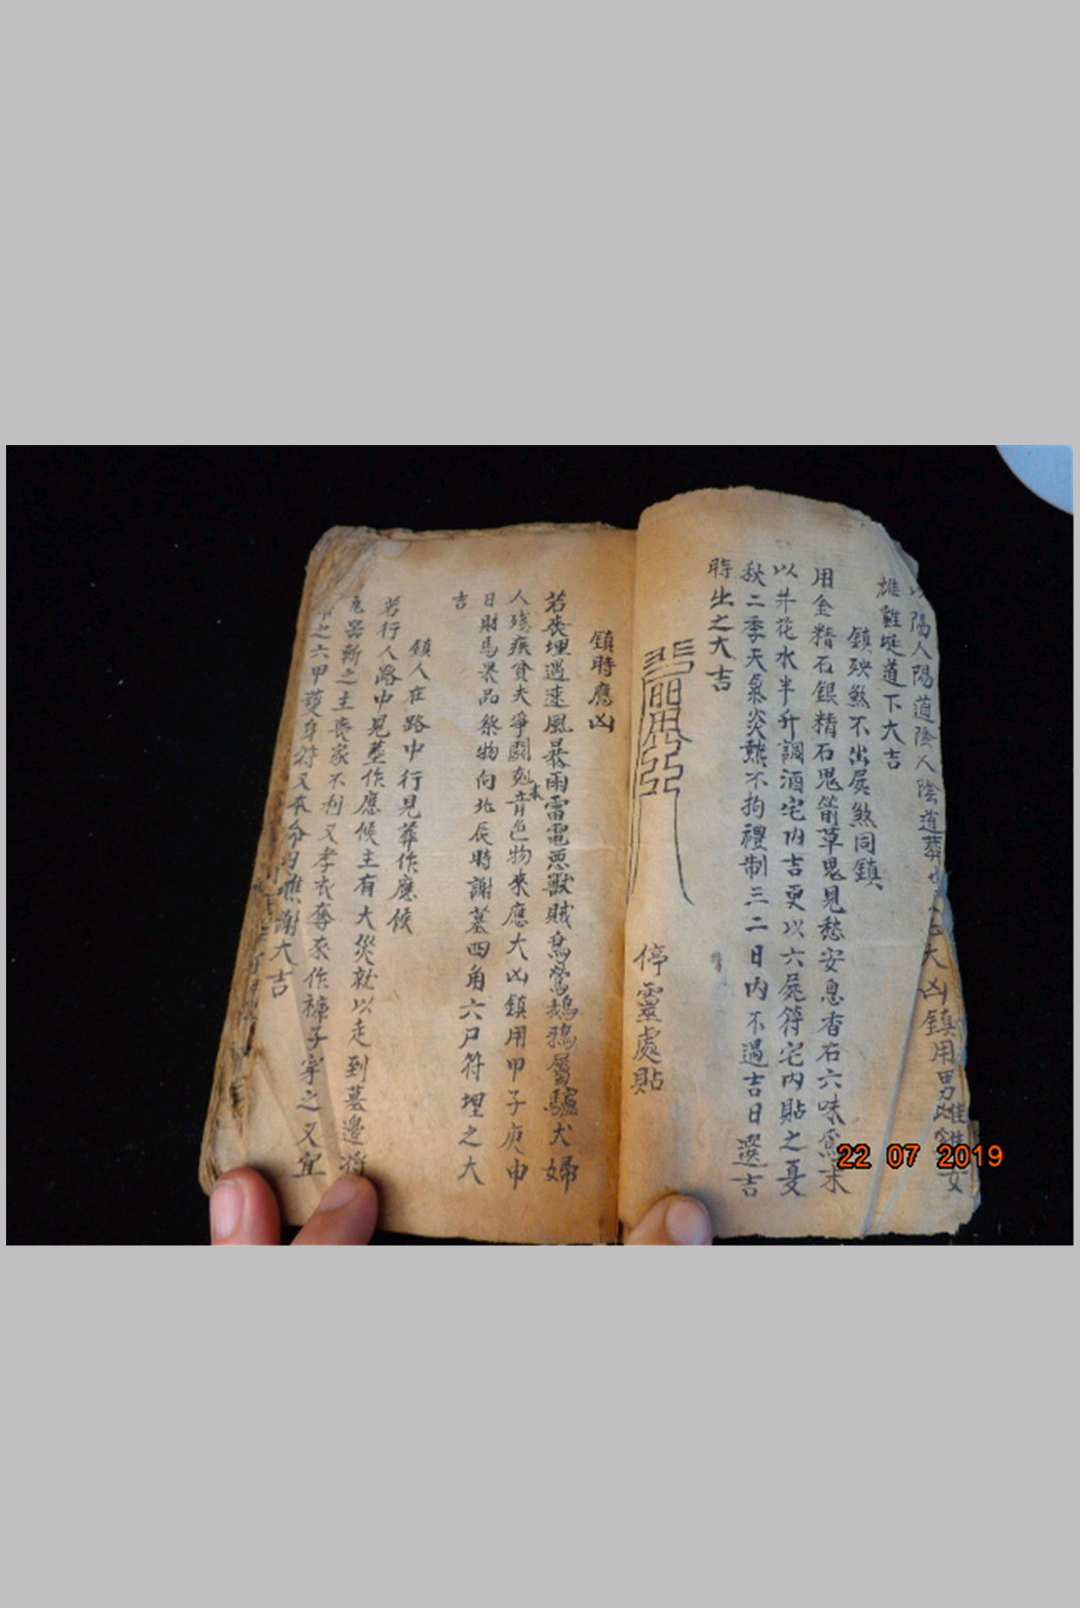 以陽人陽道陰人陰道葬 大凶鎮用男 女
雄雞埏道下大吉
鎮殃煞不出屍煞同鎮
用金精石銀精石鬼箭草鬼見愁安息香右六味為末
以井花水半升調酒宅內吉更以六屍符宅內貼之夏
秋二季天氣炎熱不拘禮制三二日內不過吉日選吉
時出之大吉
停靈處貼
鎮時應凶
若喪埋遇逺風暴雨雷電惡獸賊鳥鶯鵝鴉屬驢犬婦
人殘疾貧夫爭鬬剋青色物來應大凶鎮用甲子庚申
日財馬果品祭物向北辰時謝墓四角六尸符埋之大
吉
鎮人在路中行見葬作應候
若行人路中見葬作應候主有大災就以走到墓邊將
斬之主喪家不利又孝衣奪來作褲子穿之又宜
之六甲護身符又本命日醮謝大吉
22 07 2019